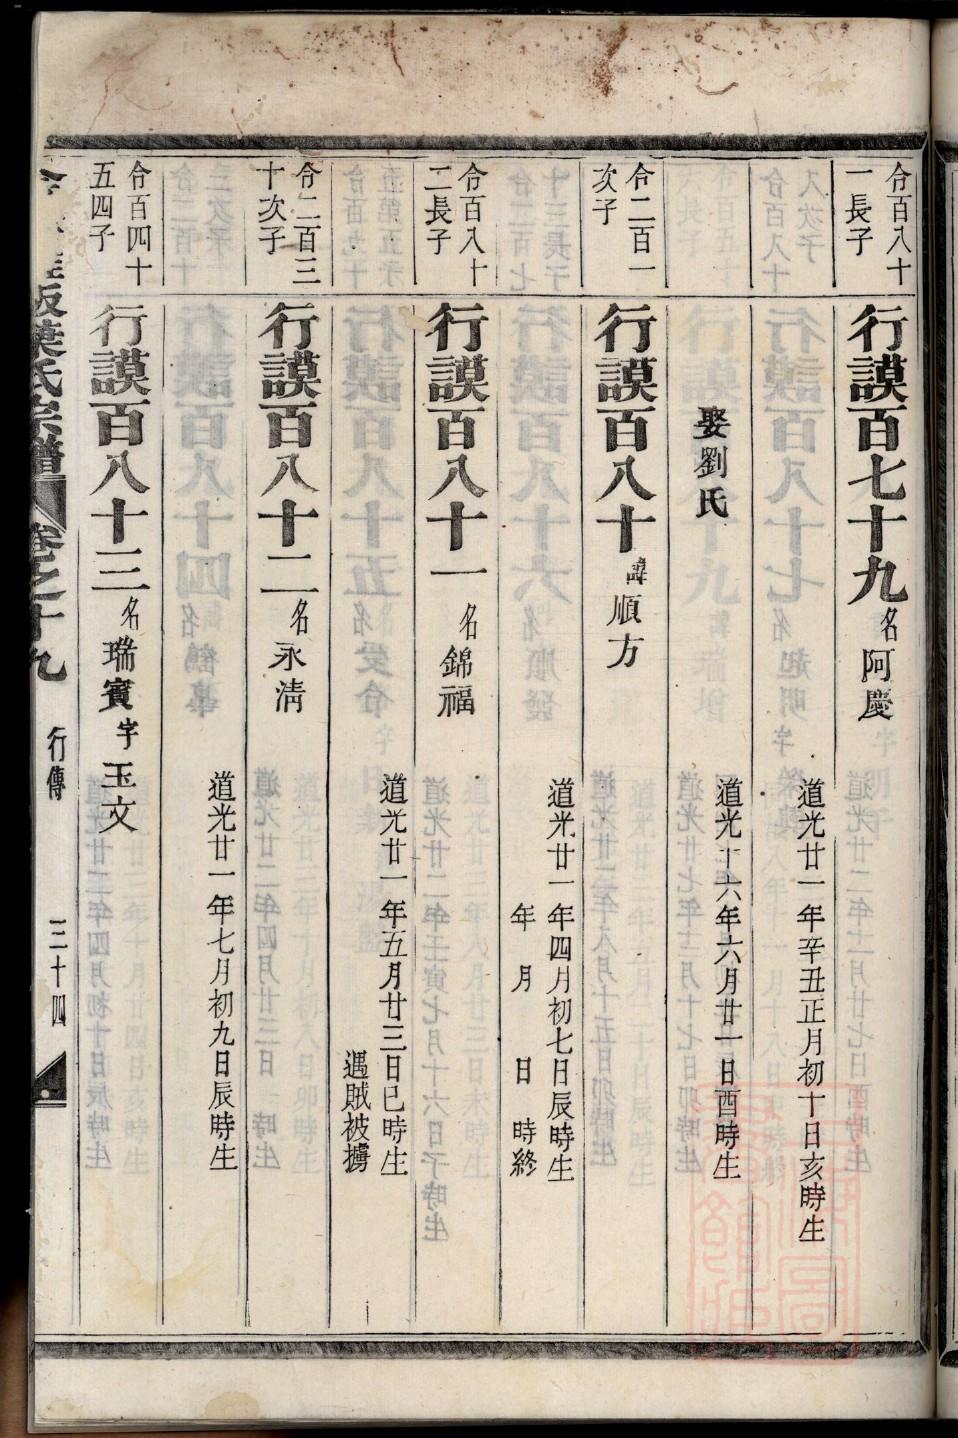 合百八十
一長子
行謨百七十九名阿慶
道光廿一年辛丑正月初十日亥時生
娶劉氏
道光十六年六月廿一日酉時生
合二百一
次子
行謨百八十諱順方
道光廿一年四月初七日辰時生
年月日時終
合百八十
二長子
行謨百八十一名錦福
道光廿一年五月廿三日巳時生
遇賊被擄
合二百三
十次子
行謨百八十二名永淸
道光廿一年七月初九日辰時生
合百四十
五四子
行謨百八十三名瑞賓字玉文
葉氏宗譜
卷之十九
行傳
三十四